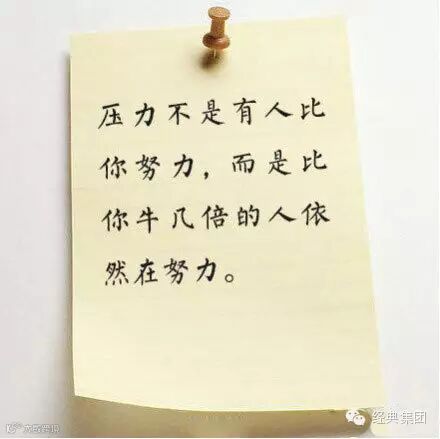 压力不是有人比
你努力，而是比
你牛几倍的人依
然在努力。
经典集团